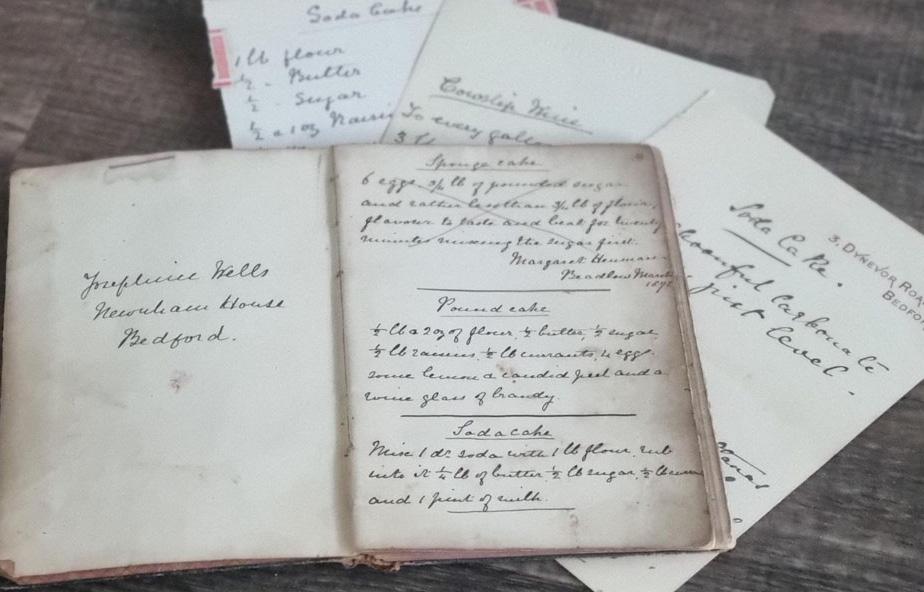 Soda Cake
1 lb flour
1/2 - Butter
1/2 - Sugar
1/2 a 1 oz
Cowslip Wine
To every
3
Josephine Wells
Newnham House
Bedford.
Sponge cake
6 eggs, 3/4 lb of pounded sugar
and rather less than 3/4 lb of flour,
flavour to taste and beat for twenty
minutes mixing the sugar first.
Margaret
Beadlow
Pound cake
1/2 lb a 2oz of flour, 1/2 butter, 1/2 sugar
1/2 lb raisins, 1/2 lb currants, 4 eggs
some lemon a candid peel and a
wine glass of brandy.
Soda cake
Mix 1 dr soda with 1 lb flour, rub
into it 1/4 lb of butter 1/2 lb sugar, 1/2 lb
and 1 pint of milk.
3, DYNEVOR
BEDFOR
Soda Cake.
Carbonate
just level -